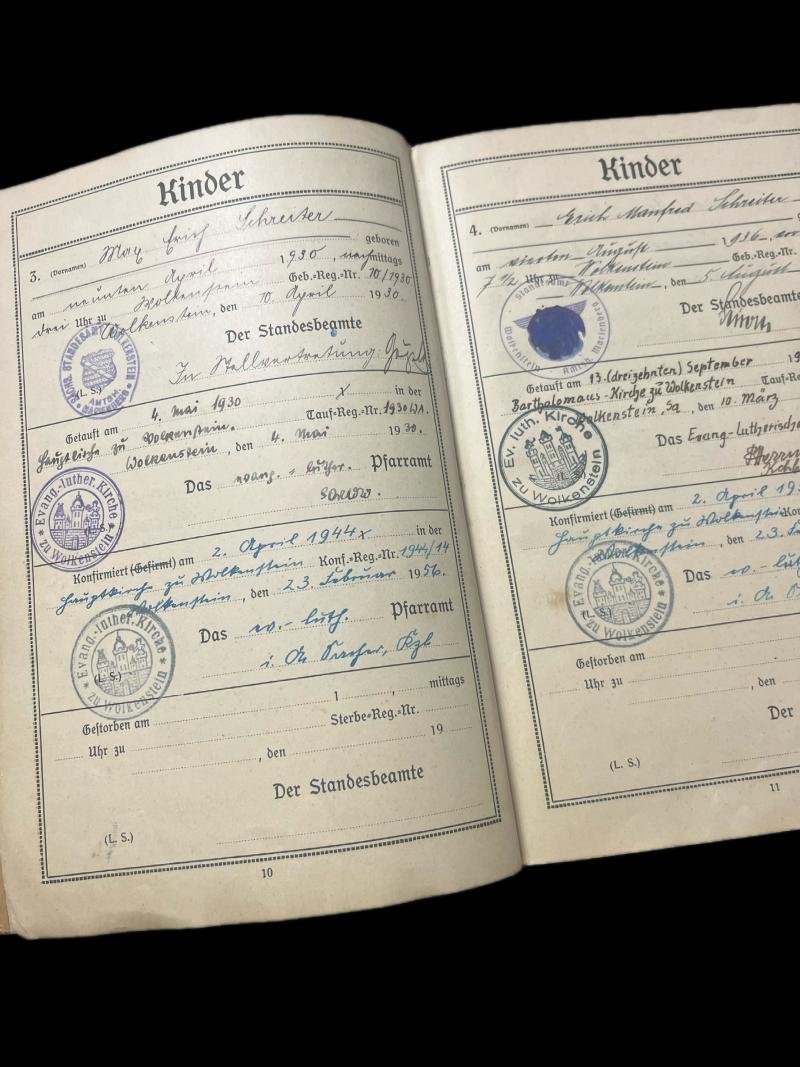 Kinder
3. (Vornamen) Max Erich Schreiter
geboren
am neunten April 1930, nachmittags
drei Uhr zu Wolkenstein Geb.-Reg.-Nr. 10/1930
Wolkenstein, den 10. April 1930.
Der Standesbeamte
In Stellvertretung:
SÄCHS. STANDESAMT WOLKENSTEIN
(L. S.)
Getauft am 4. Mai 1930 in der
Hauptkirche zu Wolkenstein. Tauf-Reg.-Nr. 1930
Wolkenstein, den 4. Mai 1930.
Das evang.-luther. Pfarramt
Evang.-luther. Kirche zu Wolkenstein
(L. S.)
Konfirmiert (Gefirmt) am 2. April 1944 in der
Hauptkirche zu Wolkenstein Konf.-Reg.-Nr. 1944/14
Wolkenstein, den 23. Februar 1956.
Das ev.-luth. Pfarramt
i. A.
Evang.-luther. Kirche zu Wolkenstein
(L. S.)
Gestorben am 1 , mittags
Uhr zu Sterbe-Reg.-Nr.
, den 19
Der Standesbeamte
(L. S.)
10
Kinder
4. (Vornamen) Erich Manfred Schreiter
am vierten August 1936, vor
7 1/2 Uhr zu Wolkenstein Geb.-Reg.-
Wolkenstein, den 5. August
Der Standesbeamte
Standesamt Wolkenstein
Getauft am 13. (dreizehnten) September 19
Bartholomäus-Kirche zu Wolkenstein Tauf-Reg
Wolkenstein, Sa., den 10. März
Das Evang.-Lutherische
Ev. luth. Kirche zu Wolkenstein
Konfirmiert (Gefirmt) am 2. April 19
Hauptkirche zu Wolkenstein Kon
Wolkenstein, den 23. F
Das ev.-luth
i. A.
Evang.-luther. Kirche zu Wolkenstein
(L. S.)
Gestorben am
Uhr zu
, den
Der
(L. S.)
11